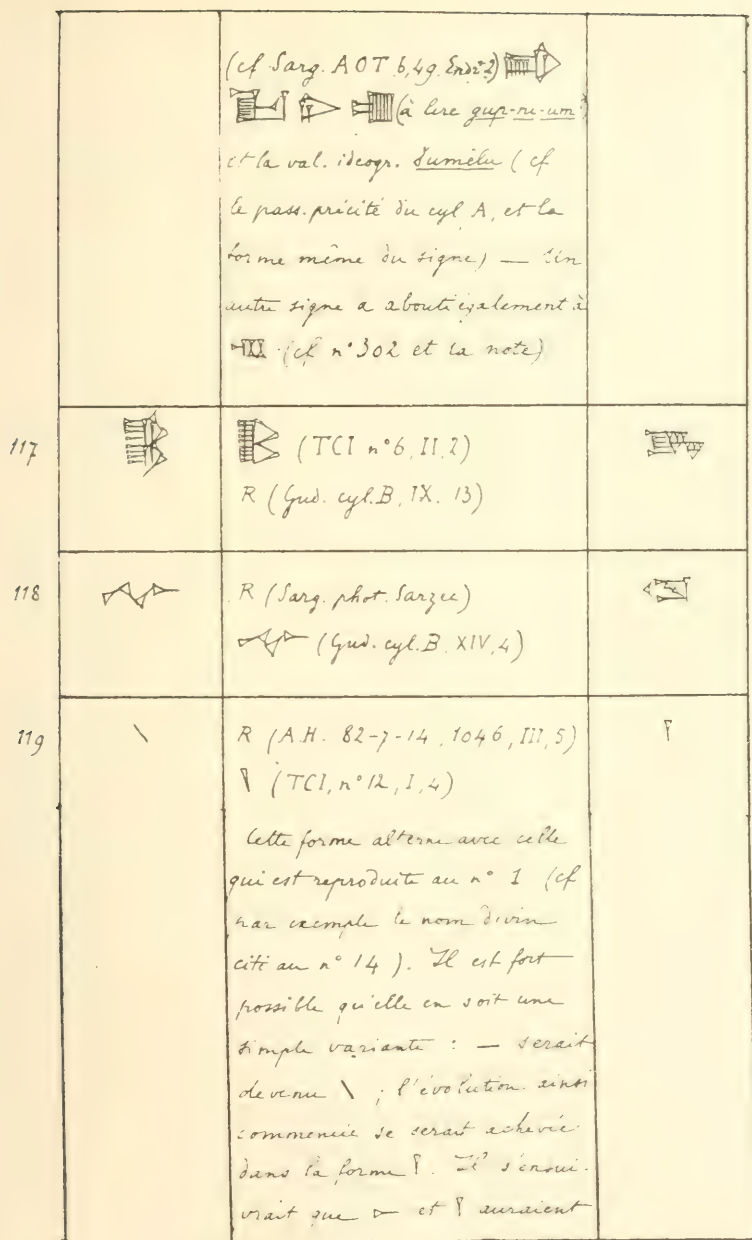 (cf Sarg. AOT b, 49. Endt 2)
(à lire gup-ni-um)
et la val. ideogr. šumêlu (cf
le pass. précité du cyl A, et la
forme même du signe) — Un
autre signe a abouti également à
(cf n° 302 et la note)
117
(TCI n° 6, II, 2)
R (Gud. cyl. B, IX. 13)
118
R (Sarg. phot. Sarzec)
(Gud. cyl. B. XIV, 4)
119 \ R (A.H. 82-7-14, 1046, III, 5)
(TCI, n° 12, I, 4)
Cette forme alterne avec celle
qui est reproduite au n° 1 (cf
par exemple le nom divin
cité au n° 14). Il est fort
possible qu'elle en soit une
simple variante : — serait
devenu \ ; l'évolution ainsi
commencée se serait achevée
dans la forme 𒁹. Il s'ensui-
vrait que 𒀸 et 𒁹 auraient